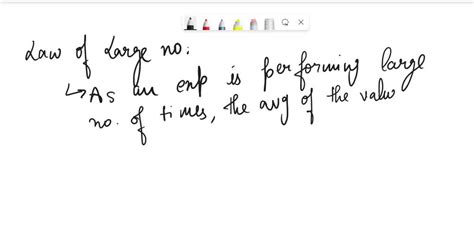 Law of Large no:
↳ As an exp is performing large
no. of times, the avg of the value